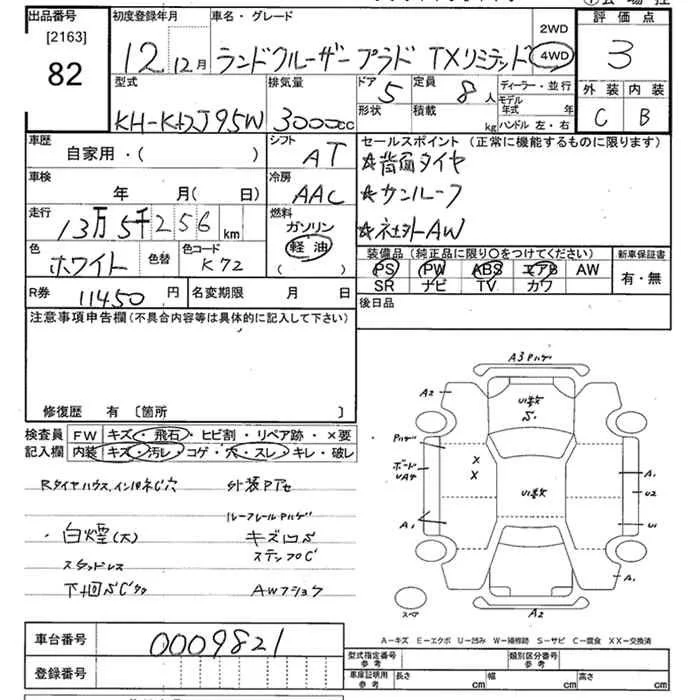 出品番号
[2163]
82
初度登録年月
12年12月
車名・グレード
ランドクルーザー プラド TXリミテッド
2WD
4WD
評価点
3
型式
KH-KDJ95W
排気量
3000cc
ドア
5
形状
定員
8人
積載
kg
ディーラー・並行
モデル年式 年
ハンドル 左・右
外装 内装
C B
車歴
自家用・( )
シフト
AT
セールスポイント (正常に機能するものに限ります)
☆背面タイヤ
☆サンルーフ
☆社外AW
車検
年 月(日)
冷房
AAC
走行
13万5千256km
燃料
ガソリン
軽油
( )
色
ホワイト
色替
色コード
K72
装備品(純正品に限り○をつけてください)
PS PW ABS エアB AW
SR ナビ TV カワ
新車保証書
有・無
R券
11450円
名変期限 月 日
後日品
注意事項申告欄(不具合内容等は具体的に記入して下さい)
修復歴 有 〔箇所 〕
検査員記入欄
FW キズ・飛石・ヒビ割・リペア跡・×要
内装 キズ・汚レ・コゲ・穴・スレ・キレ・破レ
Rタイヤハウス、イン
外装PアセPハゲ
ルーフレールPハゲ
・白煙(大)
キズ凹S
ステップC
スタッドレス
下廻S
AWフショク
A3 Pハゲ
A2
U1多数
S.
Pハゲ
ボード
A1
U2
X
X
U1多数
A1
U1
A1
スペア
A2
A-キズ E-エクボ U-凹み W-補修跡 S-サビ C-腐食 XX-交換済
車台番号
0009821
登録番号
型式指定番号
参考
類別区分番号
参考
車庫証明用
参考
長さ cm
幅 cm
高さ cm